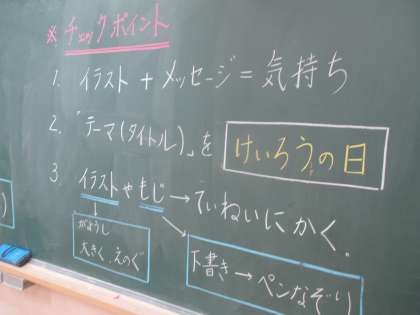 ※ チェックポイント
1. イラスト + メッセージ = 気持ち
2. 「テーマ(タイトル)」を けいろうの日
3. イラストやもじ→ていねいにかく。
がようし
大きく、えのぐ
下書き→ペンなぞり
)